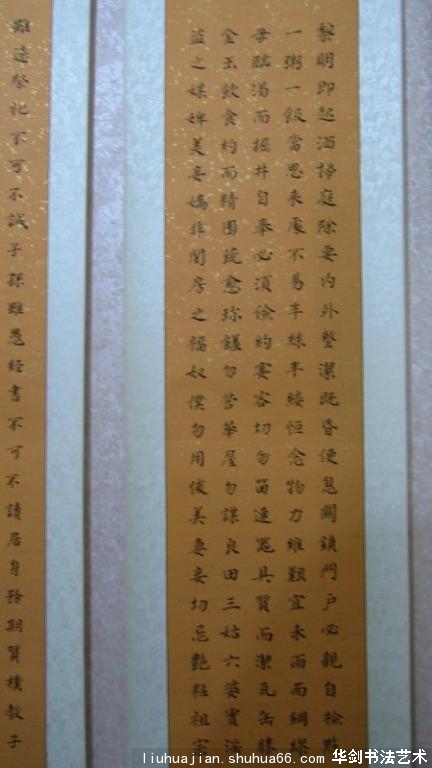 黎明即起洒掃庭除要内外整潔既昏便息關鎖門戶必親自檢點
一粥一飯當思来處不易半絲半縷恒念物力維艱宜未雨而綢繆
毋臨渴而掘井自奉必須儉約宴客切勿留連器具質而潔瓦缶勝
金玉飲食約而精園蔬愈珍饈勿营華屋勿謀良田三姑六婆實淫
盗之媒婢美妾嬌非閨房之福奴僕勿用俊美妻妾切忌艷粧祖宗
雖遠祭祀不可不誠子孫雖愚經書不可不讀居身務期質樸教子
liuhuajian.shuhua66.com 华剑书法艺术